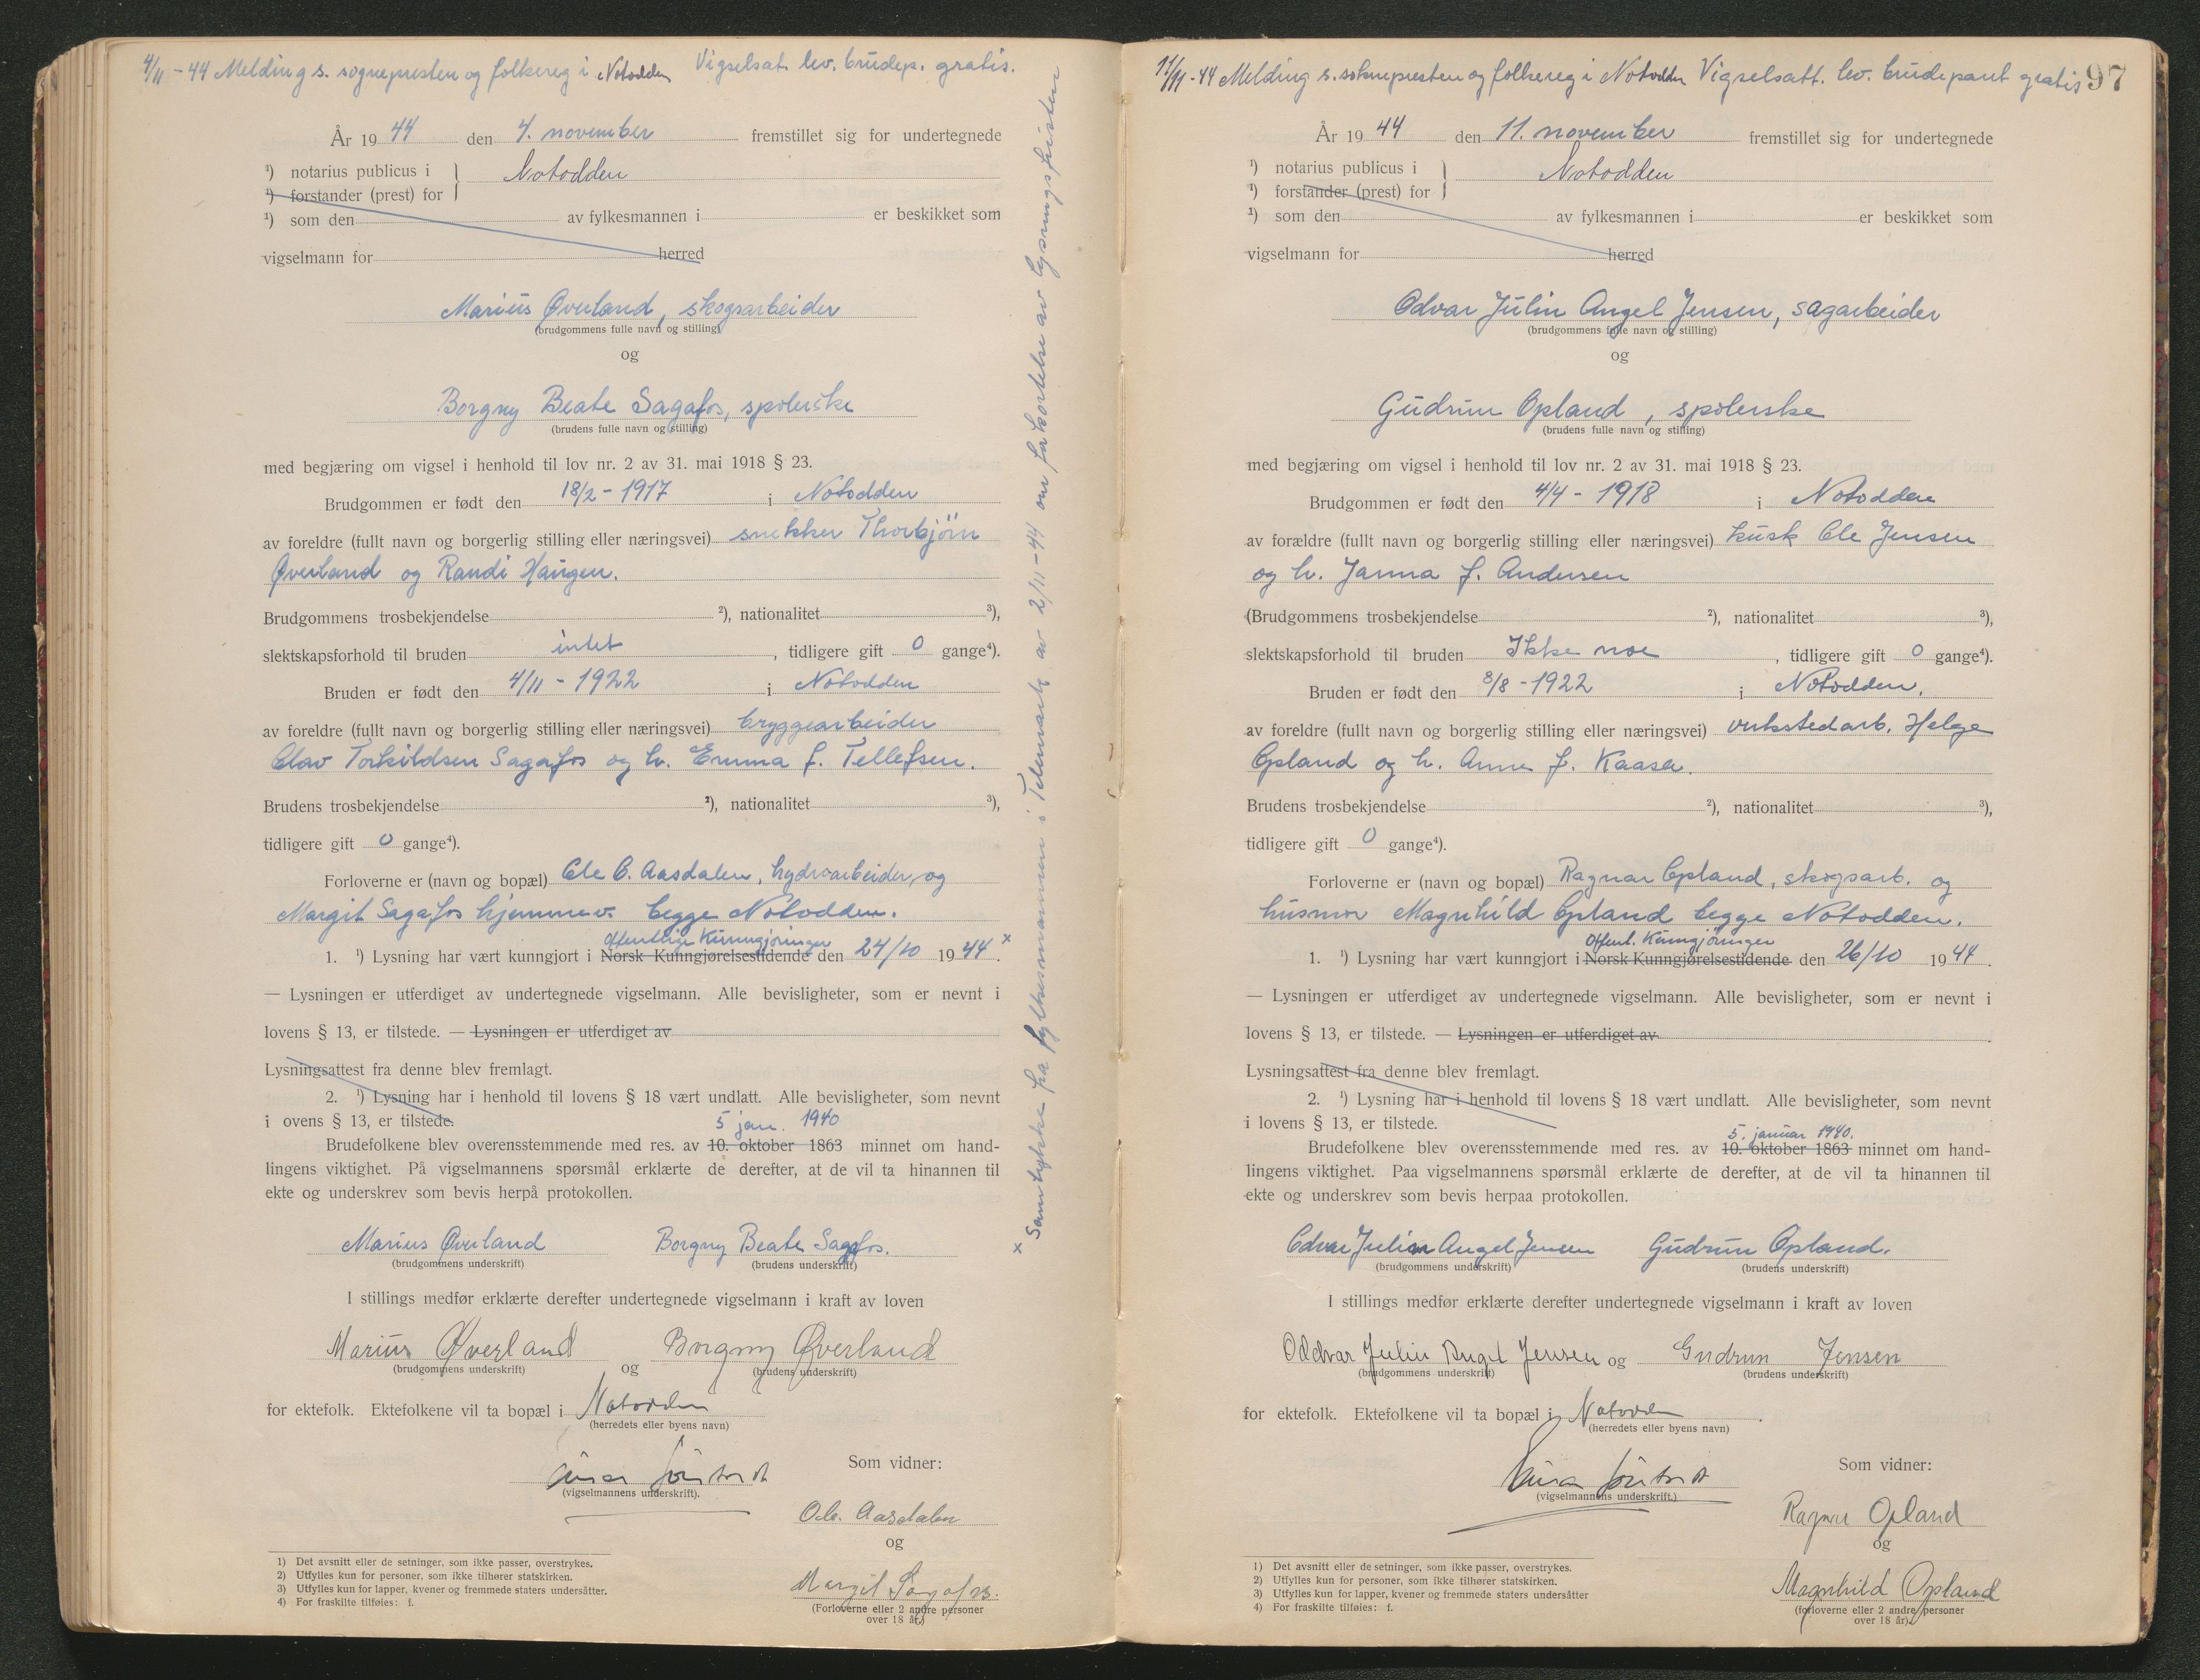 4/11 - 44 Melding s. sognepresten og folkereg i Notodden Vigselsat. lev. brudep. gratis.
År 19 44 den 4. november fremstillet sig for undertegnede
¹) notarius publicus i } Notodden
¹) forstander (prest) for
¹) som den av fylkesmannen i er beskikket som
vigselmann for herred
Marius Øverland, skogsarbeider
(brudgommens fulle navn og stilling)
og
Borgny Beate Sagafos, spolerske
(brudens fulle navn og stilling)
med begjæring om vigsel i henhold til lov nr. 2 av 31. mai 1918 § 23.
Brudgommen er født den 18/2 - 1917 i Notodden
av foreldre (fullt navn og borgerlig stilling eller næringsvei) snekker Thorbjörn
Øverland og Randi Haugen.
Brudgommens trosbekjendelse ²), nationalitet ³),
slektskapsforhold til bruden intet, tidligere gift 0 gange⁴).
Bruden er født den 4/11 - 1922 i Notodden
av foreldre (fullt navn og borgerlig stilling eller næringsvei) bryggearbeider
Olav Torkildsen Sagafos og h. Emma f. Tellefsen.
Brudens trosbekjendelse ²), nationalitet ³),
tidligere gift 0 gange⁴).
Forloverne er (navn og bopæl) Ole O. Aasdalen, hydroarbeider, og
Margit Sagafos hjemmev. begge Notodden.
offentlige Kunngjøringer
1. ¹) Lysning har vært kunngjort i Norsk Kunngjørelsestidende den 24/10 19 44 x.
— Lysningen er utferdiget av undertegnede vigselmann. Alle bevisligheter, som er nevnt i
lovens § 13, er tilstede. — Lysningen er utferdiget av
Lysningsattest fra denne blev fremlagt.
2. ¹) Lysning har i henhold til lovens § 18 vært undlatt. Alle bevisligheter, som nevnt
i ovens § 13, er tilstede.
5 jan. 1940
Brudefolkene blev overensstemmende med res. av 10. oktober 1863 minnet om hand-
lingens viktighet. På vigselmannens spørsmål erklærte de derefter, at de vil ta hinannen til
ekte og underskrev som bevis herpå protokollen.
Marius Øverland Borgny Beate Sagafos.
(brudgommens underskrift) (brudens underskrift)
I stillings medfør erklærte derefter undertegnede vigselmann i kraft av loven
Marius Øverland og Borgny Øverland
(brudgommens underskrift) (brudens underskrift)
for ektefolk. Ektefolkene vil ta bopæl i Notodden
(herredets eller byens navn)
(vigselmannens underskrift).
Som vidner:
Ole. Aasdalen
og
Margit Sagafos.
(Forloverne eller 2 andre personer
over 18 år.)
1) Det avsnitt eller de setninger, som ikke passer, overstrykes.
2) Utfylles kun for personer, som ikke tilhører statskirken.
3) Utfylles kun for lapper, kvener og fremmede staters undersåtter.
4) For fraskilte tilføies: f.
x Samtykke fra fylkesmannen i Telemark av 2/11-44 om forkortelse av lysningsfristen
11/11 - 44 Melding s. soknepresten og folkereg i Notodden Vigselsatt. lev. brudepant gratis 97
År 19 44 den 11. november fremstillet sig for undertegnede
¹) notarius publicus i } Notodden
¹) forstander (prest) for
¹) som den av fylkesmannen i er beskikket som
vigselmann for herred
Odvar Julin Angel Jensen, sagarbeider
(brudgommens fulle navn og stilling)
og
Gudrun Opland, spolerske
(brudens fulle navn og stilling)
med begjæring om vigsel i henhold til lov nr. 2 av 31. mai 1918 § 23.
Brudgommen er født den 4/4 - 1918 i Notodden
av forældre (fullt navn og borgerlig stilling eller næringsvei) kusk Ole Jensen
og h. Janna f. Andersen
(Brudgommens trosbekjendelse ²), nationalitet ³),
slektskapsforhold til bruden Ikke noe, tidligere gift 0 gange⁴).
Bruden er født den 8/8 - 1922 i Notodden.
av foreldre (fullt navn og borgerlig stilling eller næringsvei) verkstedarb. Helge
Opland og h. Anne f. Kaasa.
Brudens trosbekjendelse ²), nationalitet ³),
tidligere gift 0 gange⁴).
Forloverne er (navn og bopæl) Ragnar Opland, skogsarb. og
husmor Magnhild Opland begge Notodden.
Offent. Kunngjøringer
1. ¹) Lysning har vært kunngjort i Norsk Kunngjørelsestidende den 26/10 19 44.
— Lysningen er utferdiget av undertegnede vigselmann. Alle bevisligheter, som er nevnt i
lovens § 13, er tilstede. — Lysningen er utferdiget av
Lysningsattest fra denne blev fremlagt.
2. ¹) Lysning har i henhold til lovens § 18 vært undlatt. Alle bevisligheter, som nevnt
i lovens § 13, er tilstede.
5. januar 1940.
Brudefolkene blev overensstemmende med res. av 10. oktober 1863 minnet om hand-
lingens viktighet. Paa vigselmannens spørsmål erklærte de derefter, at de vil ta hinannen til
ekte og underskrev som bevis herpaa protokollen.
Odvar Julin Angel Jensen Gudrun Opland.
(brudgommens underskrift) (brudens underskrift)
I stillings medfør erklærte derefter undertegnede vigselmann i kraft av loven
Oddvar Julin Angel Jensen og Gudrun Jensen
(brudgommens underskrift) (brudens underskrift)
for ektefolk. Ektefolkene vil ta bopæl i Notodden.
(herredets eller byens navn)
(vigselmannens underskrift.)
Som vidner:
Ragnar Opland
og
Magnhild Opland
(forloverne eller 2 andre personer
over 18 år).
1) Det avsnitt eller de setninger, som ikke passer, overstrykes.
2) Utfylles kun for personer, som ikke tilhører statskirken.
3) Utfylles kun for lapper, kvener og fremmede staters undersåtter
4) For fraskilte tilføies: f.